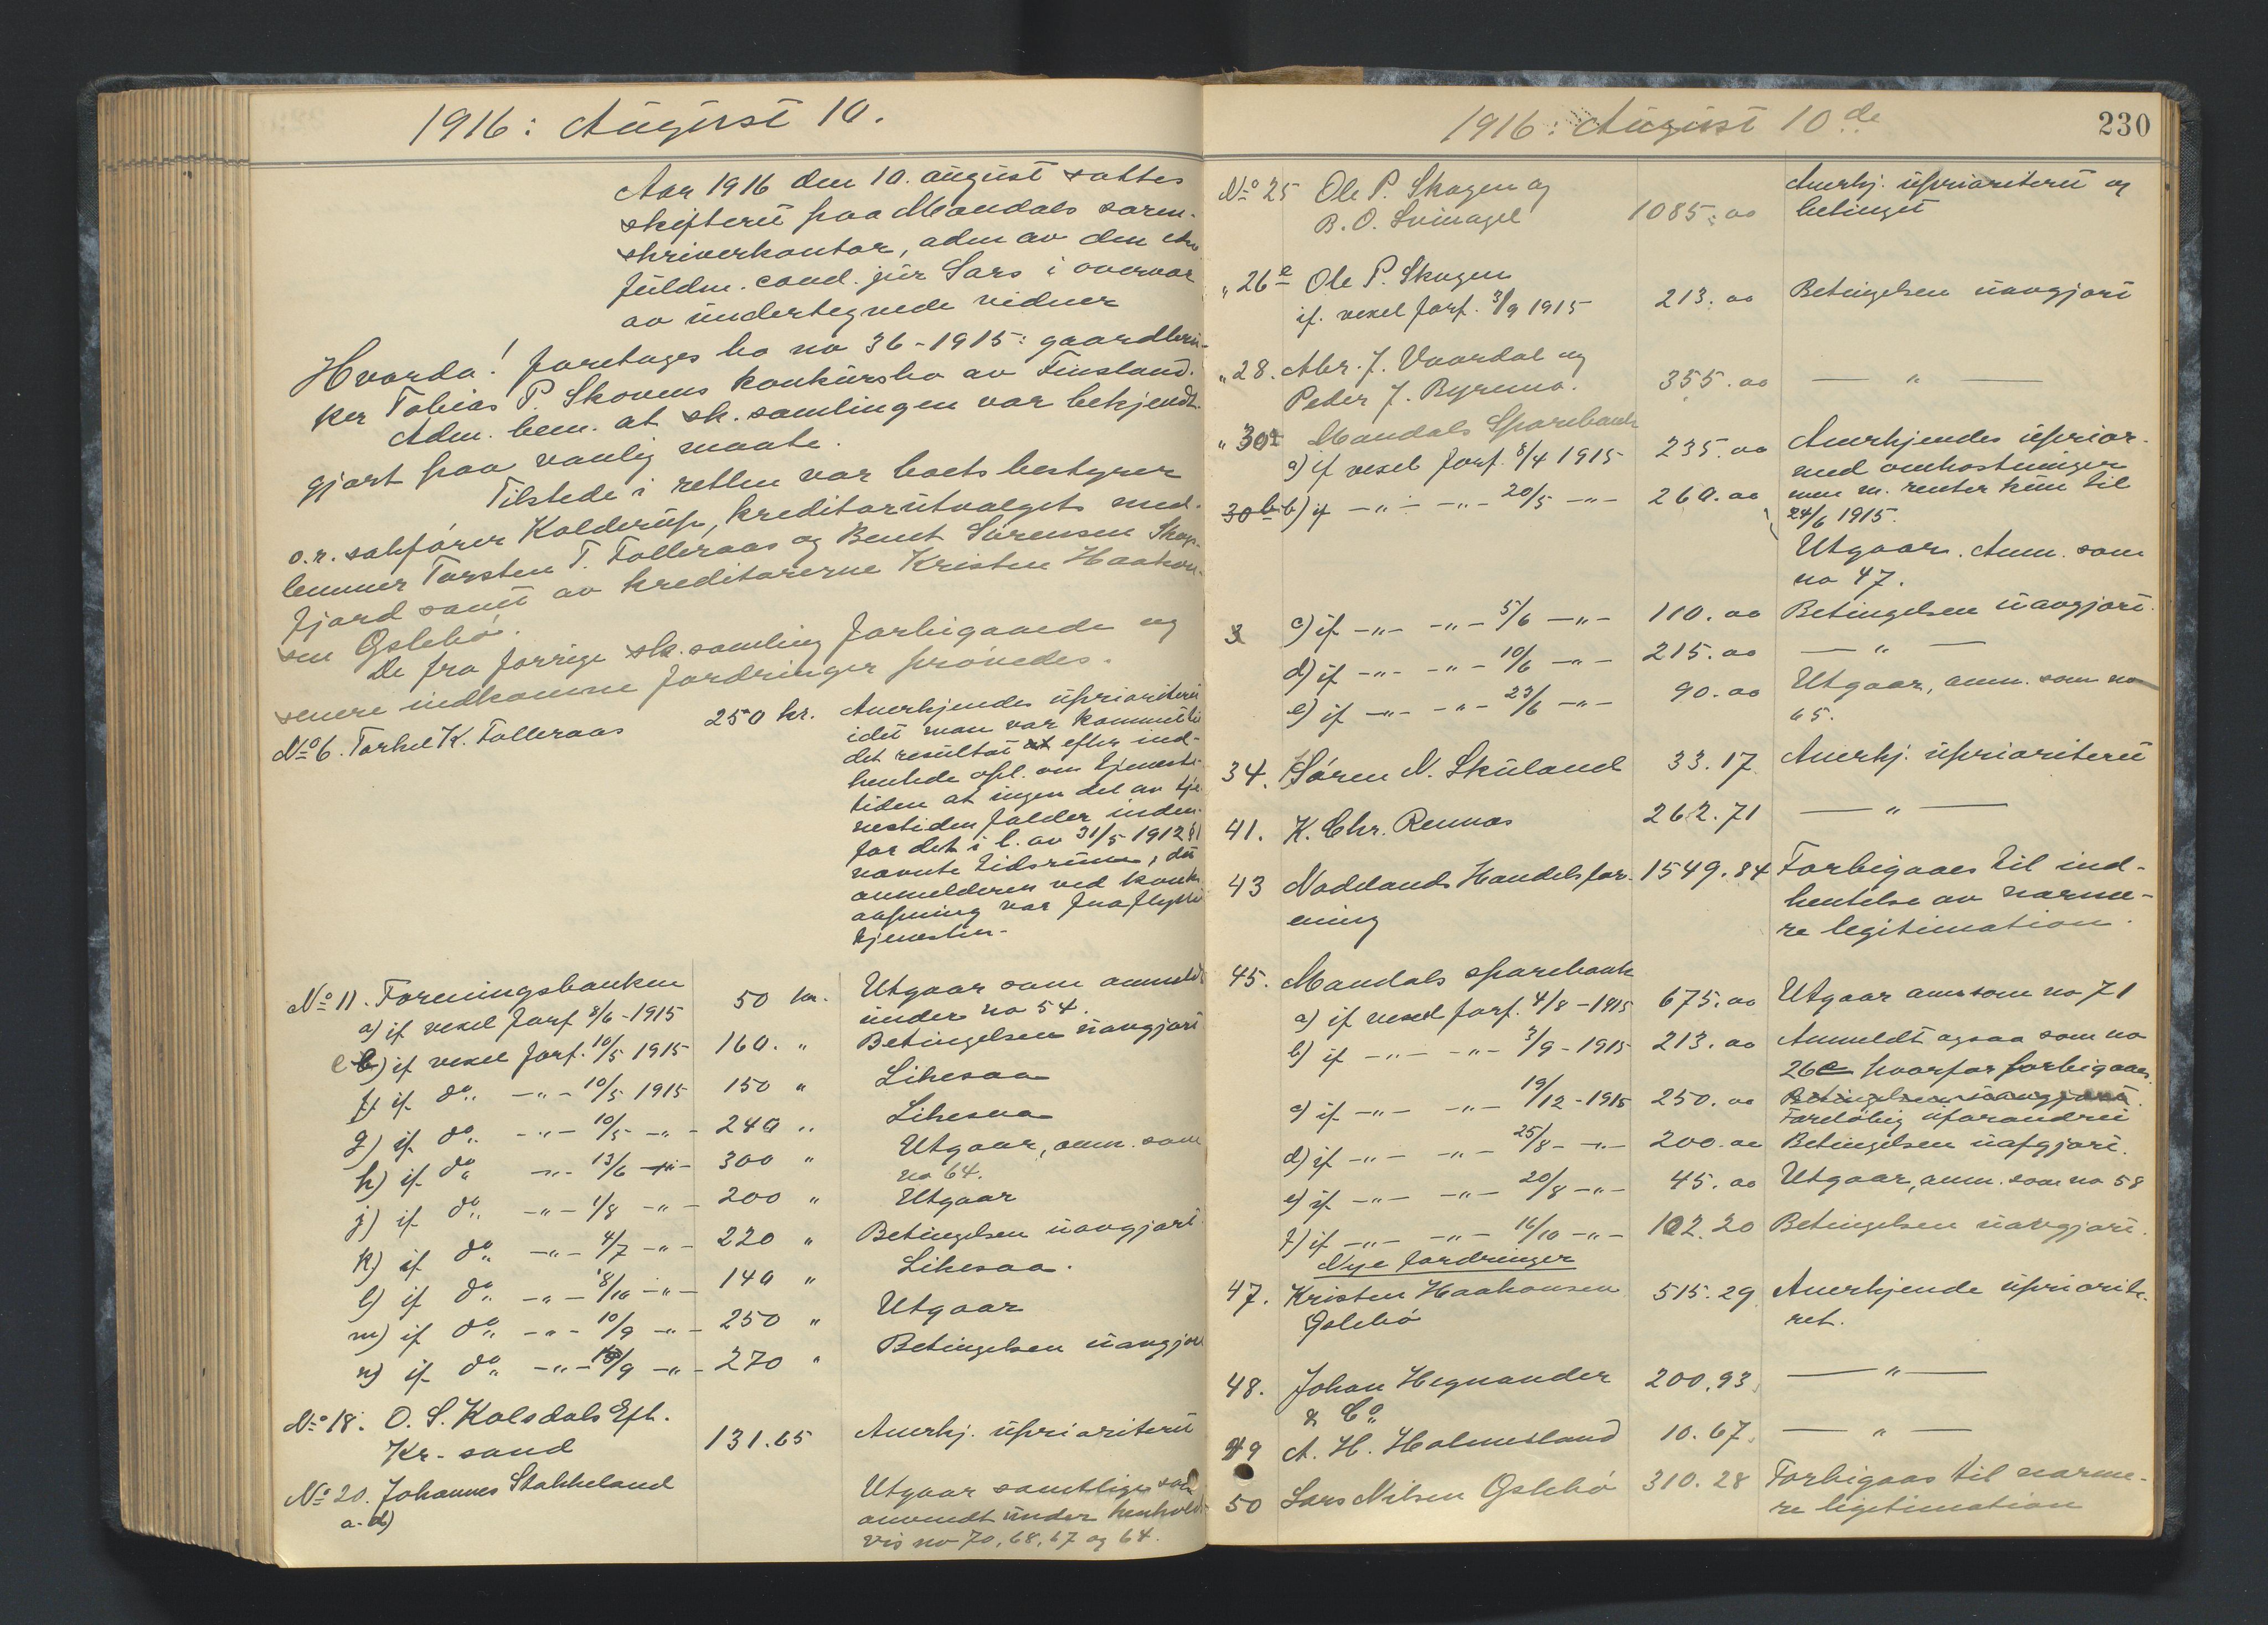 1916: August 10.
Aar 1916 den 10. august sattes
skifteret paa Mandals soren-
skriverkontor, adm av den
fuldm. cand. jur Sars i overvær
av undertegnede vidner
Hvorda! foretages bo no 36-1915: gaardbru-
ker Tobias P. Skovens konkursbo av Finsland.
Adm. bem. at sk. samlingen var bekjendt-
gjort paa vanlig maate.
Tilstede i retten var boets bestyrer
o.r. sakfører Kolderup, kreditorutvalgets med-
lemmer Torsten T. Folleraas og Bernt Sørensen Skog-
fjord samt av kreditorerne Kristen Haakon-
sen Øslebø.
De fra forrige sk. samling forbigaaede og
senere indkomne fordringer prøvedes.
No 6. Torkel K. Folleraas 250 kr. Anerkjendes uprioriteret
idet man var kommet til
det resultat at efter ind-
hentede opl. om tjeneste-
tiden at ingen del av tje-
nestiden falder inden-
for det i l. av 31/5 1912 §1
nævnte tidsrum, da
anmelderen ved konk.
aapning var fraflyttet
tjenesten.
No 11. Foreningsbanken
a) if vexel forf 8/6 - 1915 50 kr. Utgaar som anmeldt
under no 54.
b) if vexel forf. 10/5 1915 160. " Betingelsen uavgjort
f) if do " - " - 10/5 1915 150 " Likesaa
g) if do " - " - 10/5 - " - 240 " Likesaa
h) if do " - " - 13/6 - " - 300 " Utgaar, anm. som
no 64.
j) if do " - " - 1/8 - " - 200 " Utgaar
k) if do " - " - 4/7 - " - 220 " Betingelsen uavgjort
l) if do " - " - 8/10 - " - 140 " Likesaa.
m) if do " - " - 10/9 - " - 250 " Utgaar
n) if do " - " - /9 - " - 270 " Betingelsen uavgjort
No 18. O. S. Kalsdals Eft.
Kr-sand 131.65 Anerkj. uprioriteret
No 20. Johannes Stakkeland
a-d) Utgaar samtlige som
anmeldt under henholds-
vis no 70, 68, 67 og 64.
1916: August 10de
230
No 25 Ole P. Skogen og
B. O. Svinagel 1085.00 Anerkj. uprioriteret og
betinget
" 26e Ole P. Skogen
if. vexel forf. 3/9 1915 213.00 Betingelsen uavgjort
" 28. Abr. J. Vaardal og
Peder J. Byremo. 355.00 — " —
" 30a Mandals Sparebank
a) if vexel forf. 8/4 1915 235.00 Anerkjendes uprior.
med omkostninger
men m. renter kun til
24/6 1915.
30b b) if - " - - " - 20/5 - " - 260.00 Utgaar. Anm. som
no 47.
c) if - " - - " - 5/6 - " - 110.00 Betingelsen uavgjort.
d) if - " - - " - 10/6 - " - 215.00 — " —
e) if - " - - " - 23/6 - " - 90.00 Utgaar, anm. som no
65.
34. Søren N. Skuland 33.17 Anerkj. uprioriteret
41. K. Chr. Rennes 262.71 — " —
43 Nodelands Handelsfor-
ening 1549.84 Forbigaaes til ind-
hentelse av nærme-
re legitimation.
45. Mandals sparebank
a) if vexel forf. 4/8 - 1915 675.00 Utgaar anm som no 71
b) if - " - - " - 3/9 - 1915 213.00 Anmeldt ogsaa som no
26e hvorfor forbigaaes.
c) if - " - - " - 19/12 - 1915 250.00 Betingelsen uavgjort.
Foreløbig uforandret
d) if - " - - " - 25/8 - " - 200.00 Betingelsen uafgjort.
e) if - " - - " - 20/8 - " - 45.00 Utgaar, anm. som no 58
f) if - " - - " - 16/10 - " - 102.20 Betingelsen uavgjort.
Nye fordringer
47. Kristen Haakonsen
Øslebø 515.29 Anerkjende upriorite-
ret.
48. Johan Hegnander
& Co 200.93 — " —
49 A. H. Holmesland 10.67. — " —
50 Lars Nilsen Øslebø 310.28 Forbigaas til nærme-
re legitimation